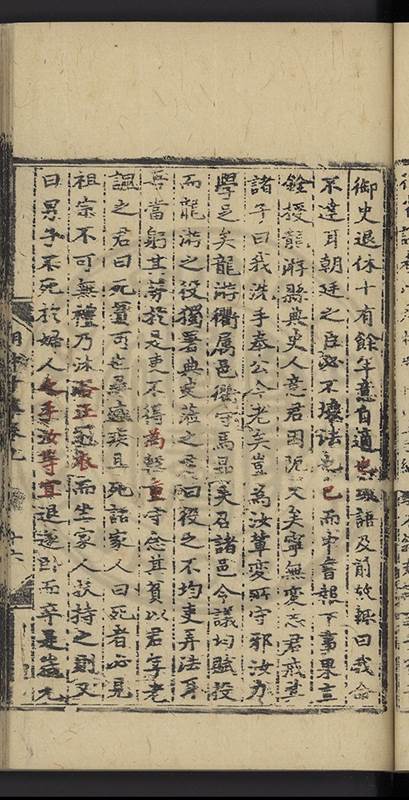 御史退休十有餘年意自適也或語及前故輒曰我命
不達耳朝廷之臣必不壞法也已而中書報下事果言
銓授龍游縣典史人意君困阨久矣寧無變志君戒其
諸子曰我洗手奉公今老矣豈為汝輩變所守邪汝力
學足矣龍游衢屬邑衢守馬君召諸邑令議均賦役
而龍游之役獨署典史蒞之君曰役之不均吏弄法耳
吾當躬其勞於是吏不得為輕重守念其貧以君年老
諷之君曰死寘可也無疾且死語家人曰死者必見
祖宗不可無禮乃沐浴正冠衣而坐家人扶持之則又
曰男子不死於婦人之手汝等宜退遂卧而卒是歲元